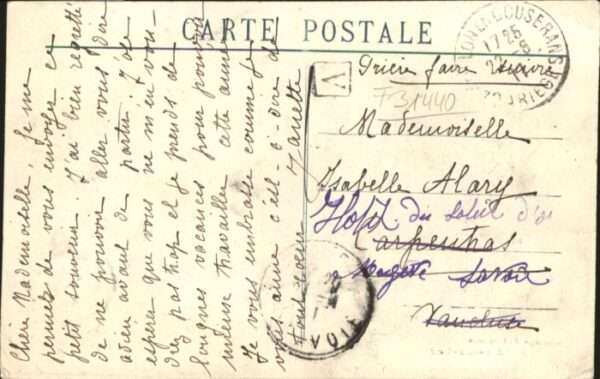 CARTE POSTALE
Chère Mademoiselle, Je me
permets de vous envoyer ce
petit souvenir. J'ai bien regretté
de ne pouvoir aller vous dire
adieu avant de partir. J'ose
espérer que vous ne m'en vou-
drez pas trop et je prends de
longues vacances pour pouvoir
mieux travailler cette année
Je vous embrasse comme je
vous aime c'est-à-dire de
tout coeur
17 25
22
V
Prière faire suivre
F31440
Mademoiselle
Isabelle Alary
Hotel du Soleil d'or
Carpentras
Megève Savoie
Vaucluse
VOIE